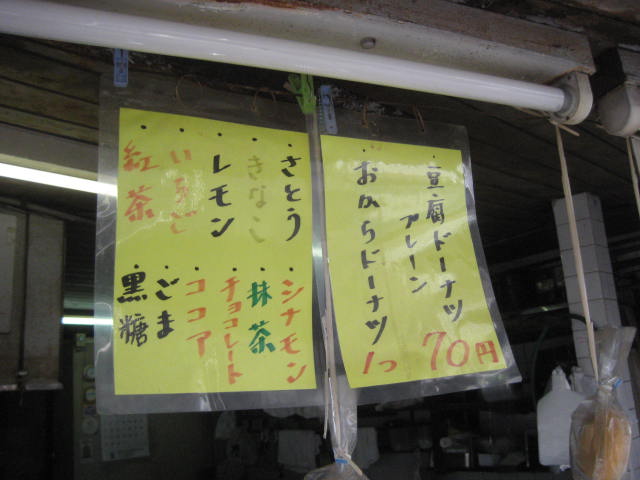 ・豆腐ドーナツ
プレーン
70円
・おからドーナツ
1つ
・さとう
・きなこ
・レモン
・いちご
・紅茶
・シナモン
・抹茶
・チョコレート
・ココア
・ごま
・黒糖